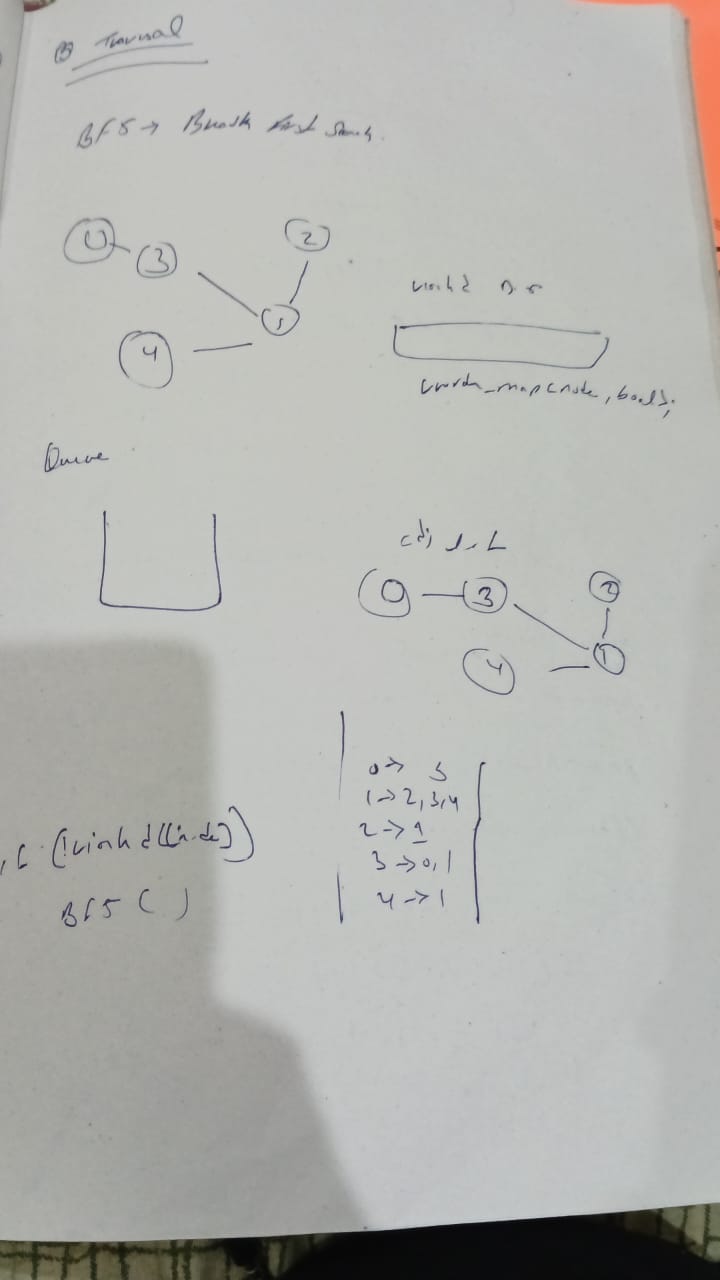 ③ Traversal
BFS → Breadth First Search.
0 3 2
1
4
visited D.S
unordered_map<node, bool>;
Queue
adj list
0 3 2
4 1
0 → 3
1 → 2, 3, 4
2 → 1
3 → 0, 1
4 → 1
if (!visited[node])
BFS ( )